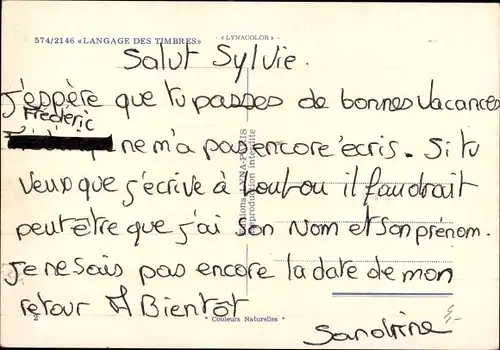 574/2146 «LANGAGE DES TIMBRES» - «LYNACOLOR» -
Salut Sylvie.
J'espère que tu passes de bonnes vacances
Frédéric
ne m'a pas encore écris. Si tu
veux que j'écrive à toutou il faudrait
peut être que j'ai son nom et son prénom.
Je ne sais pas encore la date de mon
retour A Bientôt
2 "Couleurs Naturelles"
Sandrine
LYNA-PARIS
reproduction interdite